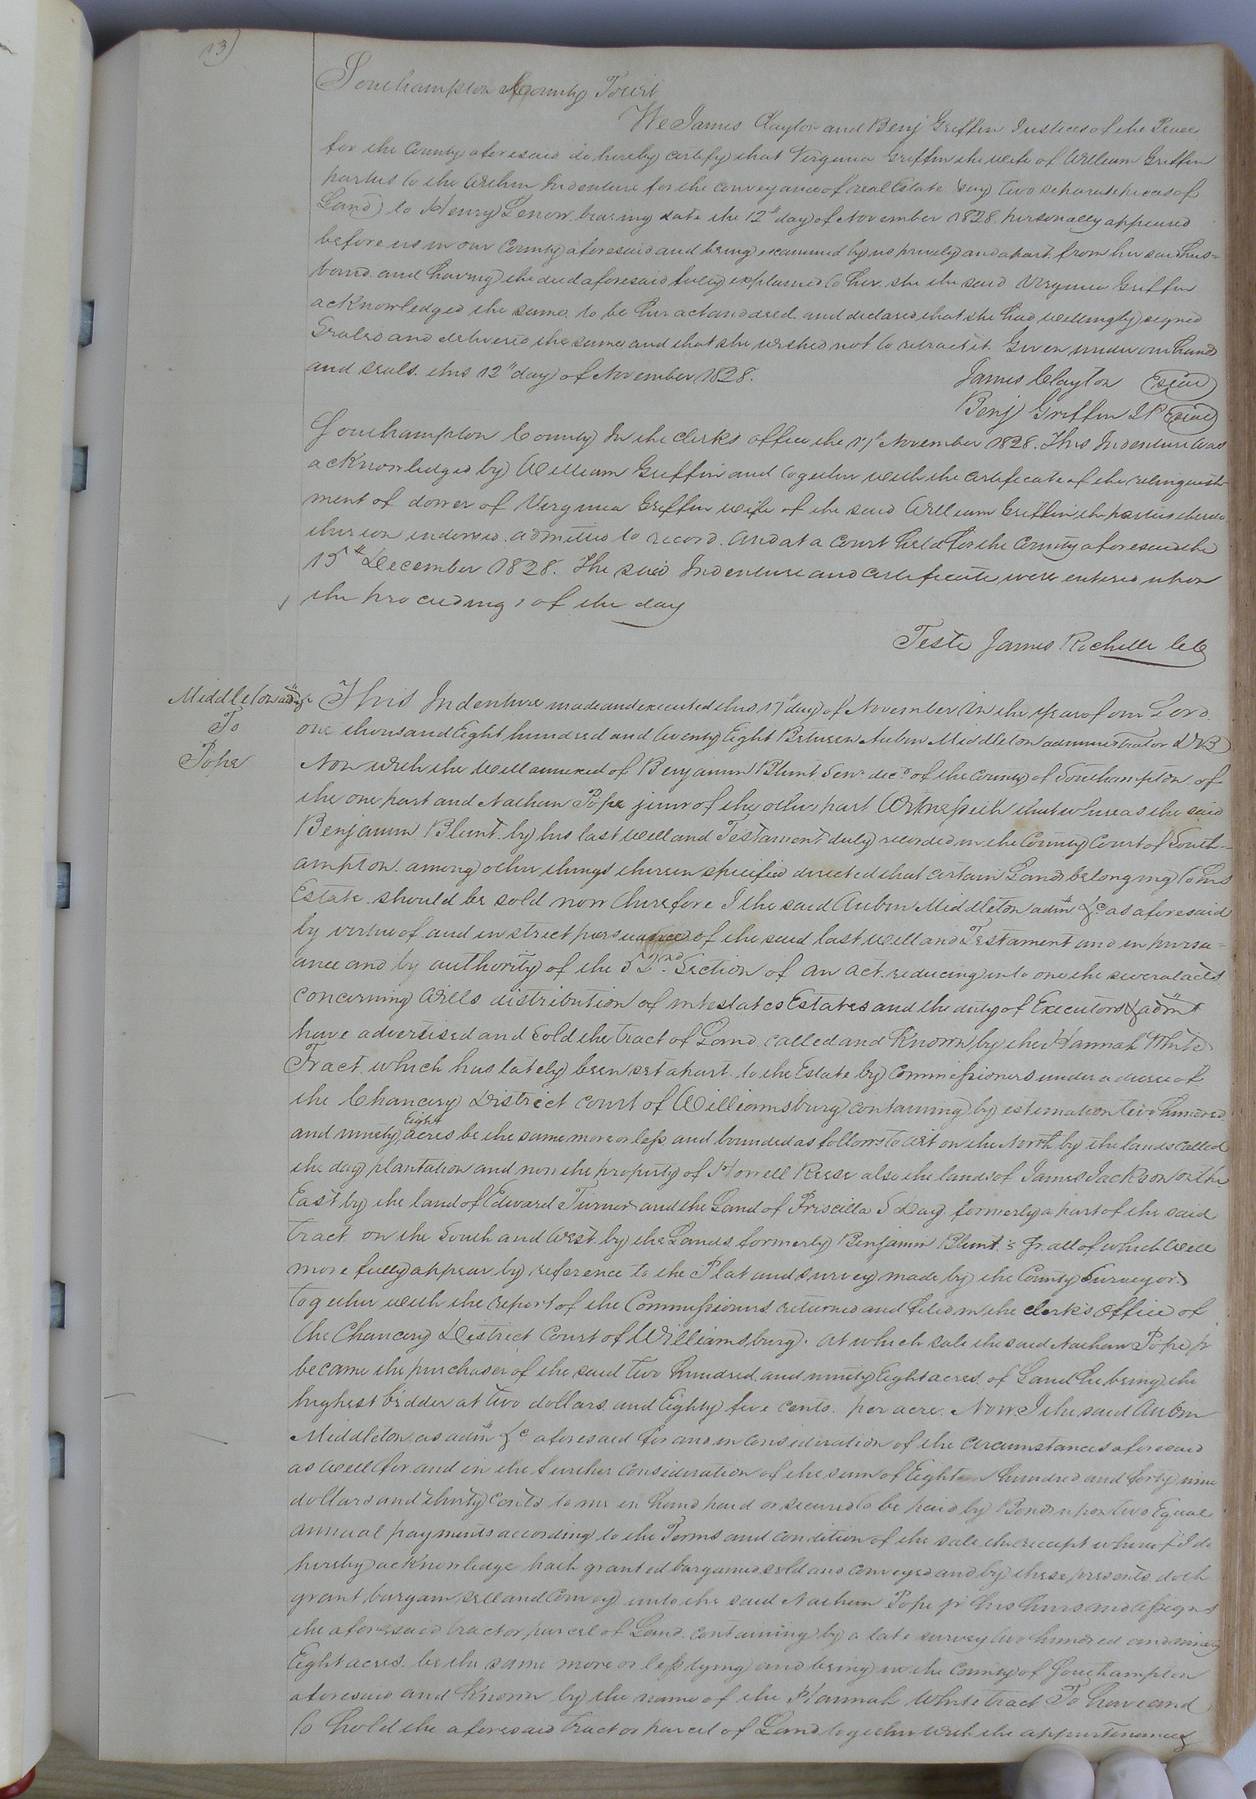 13)
Southampton County Court
We James Clayton and Benj Griffin Justices of the Peace
for the County aforesaid do hereby certify that Virginia Griffin the wife of William Griffin
parties to the within Indenture for the conveyance of real Estate (say) two separate pieces of
Land) to Henry Lenow bearing date the 12th day of November 1828 personally appeared
before us in our County aforesaid and being examined by us privily and apart from her said hus-
band and having the deed aforesaid fully explained to her she the said Virginia Griffin
acknowledged the same to be her act and deed and declared that she had willingly signed
Sealed and delivered the same and that she wished not to retract it. Given under our hands
and seals this 12th day of November 1828.
James Clayton (seal)
Benj Griffin JP (seal)
Southampton County In the clerks office the 17th November 1828. This Indenture was
acknowledged by William Griffin and together with the certificate of the relinquish-
ment of dower of Virginia Griffin wife of the said William Griffin the parties thereto
thereon indorsed admitted to record. And at a court held for the County aforesaid the
15th December 1828. The said Indenture and certificate were entered upon
the proceedings of the day
Teste James Rochelle CC
Middleton adm &c
To
Pope
This Indenture made and executed this 17th day of November in the year of our Lord
one thousand Eight hundred and twenty Eight Between Aubin Middleton administrator DB
Non with the will annexed of Benjamin Blunt Senr decd of the County of Southampton of
the one part and Nathan Pope junr of the other part Witnesseth that whereas the said
Benjamin Blunt by his last will and Testament duly recorded in the County Court of South-
ampton among other things therein specified directed that certain Land belonging to his
Estate should be sold now therefore I the said Aubin Middleton adm &c as aforesaid
by virtue of and in strict persuance of the said last will and Testament and in pursu-
ance and by authority of the 52nd Section of an act reducing into one the several acts
concerning Wills distribution of intestates Estates and the duty of Executors & admr
have advertised and sold the tract of Land called and known by the Hannah White
Tract which has lately been set apart to the Estate by Commissioners under a decree of
the Chancery District court of Williamsburg containing by estimation two hundred
and ninety Eight acres be the same more or less and bounded as follows to wit on the North by the lands called
the day plantation and now the property of Howell Reese also the land of James Jackson on the
East by the land of Edward Turner and the Land of Priscilla S Day formerly a part of the said
tract on the South and West by the Lands formerly Benjamin Blunt's Jr all of which will
more fully appear by reference to the Plat and survey made by the County Surveyor
together with the report of the Commissioners returned and filed in the clerk's Office of
the Chancery District Court of Williamsburg. at which sale the said Nathan Pope jr
became the purchaser of the said two hundred and ninety Eight acres of Land he being the
highest bidder at two dollars and Eighty five cents per acre. Now I the said Aubin
Middleton as adm &c aforesaid for and in consideration of the circumstances aforesaid
as well for and in the further consideration of the sum of Eighteen hundred and forty nine
dollars and thirty cents to me in hand paid or secured to be paid by Bonds upon two Equal
annual payments according to the Terms and condition of the sale the receipt whereof I do
hereby acknowledge hath granted bargained sold and conveyed and by these presents doth
grant bargain sell and convey unto the said Nathan Pope jr his heirs and assigns
the aforesaid tract or parcel of Land containing by a late survey two hundred and ninety
Eight acres be the same more or less lying and being in the County of Southampton
aforesaid and known by the name of the Hannah White tract To have and
to hold the aforesaid tract or parcel of Land together with the appurtenances